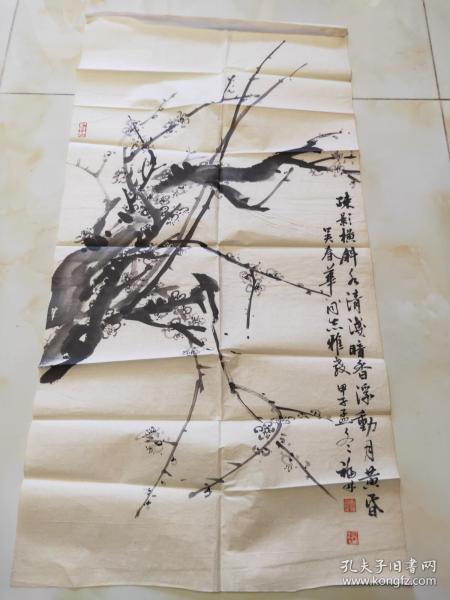 疎影橫斜水清淺暗香浮動月黃昏
吴春華同志雅教 甲子孟冬福
孔夫子旧书网
www.kongfz.com